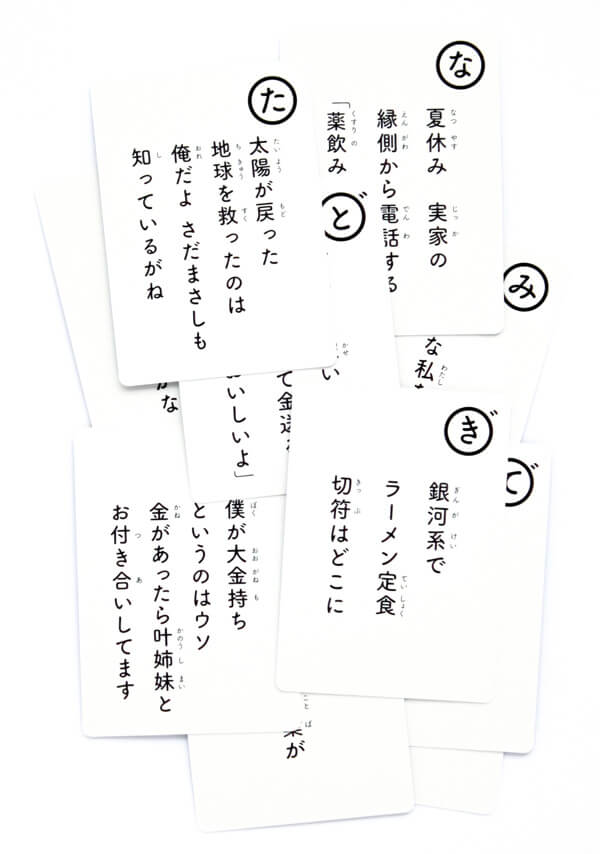 た
太陽が戻った
地球を救ったのは
俺だよ さだまさしも
知っているがね
な
夏休み 実家の
縁側から電話する
「薬飲み
ど
おいしいよ」
み
な私
ぎ
銀河系で
ラーメン定食
切符はどこに
で
僕が大金持ち
というのはウソ
金があったら叶姉妹と
お付き合いしてます